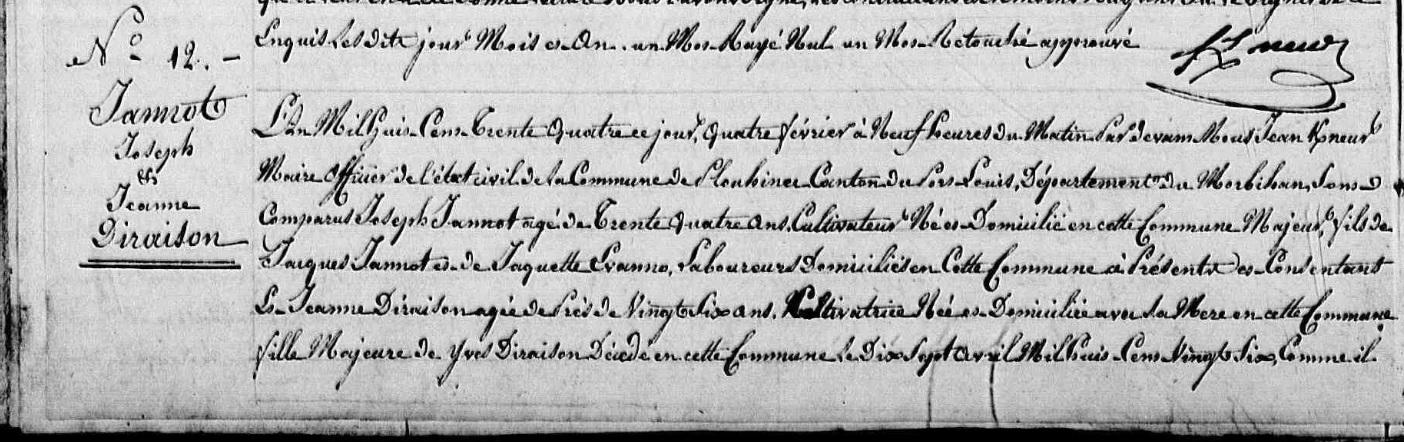 Enquis les dits jour Mois et An. un Mot Rayé Nul un Mot Retouché approuvé
N.º 12. -
Jannot
Joseph
&
Jeanne
Diraison
L'An Mil Huit Cent Trente Quatre ce jour, Quatre février à Neuf heures du Matin Par devant Nous Jean
Maire Officier de l'état civil de la Commune de Plouhinec Canton du Port Louis, Département du Morbihan, Sont
Comparus Joseph Jannot agé de Trente Quatre Ans, Cultivateur Né et Domicilié en cette Commune Majeur, fils de
Jacques Jannot et de Jaquette Evanno, Laboureurs Domiciliés en Cette Commune à Présents et Consentant
Et Jeanne Diraison agée de Près de Vingt Six ans, Cultivatrice Née et Domiciliée avec sa Mere en cette Commune
fille Majeure de Yves Diraison Décédé en cette Commune le Dix Sept Avril Mil huit Cent Vingt Six, Comme il